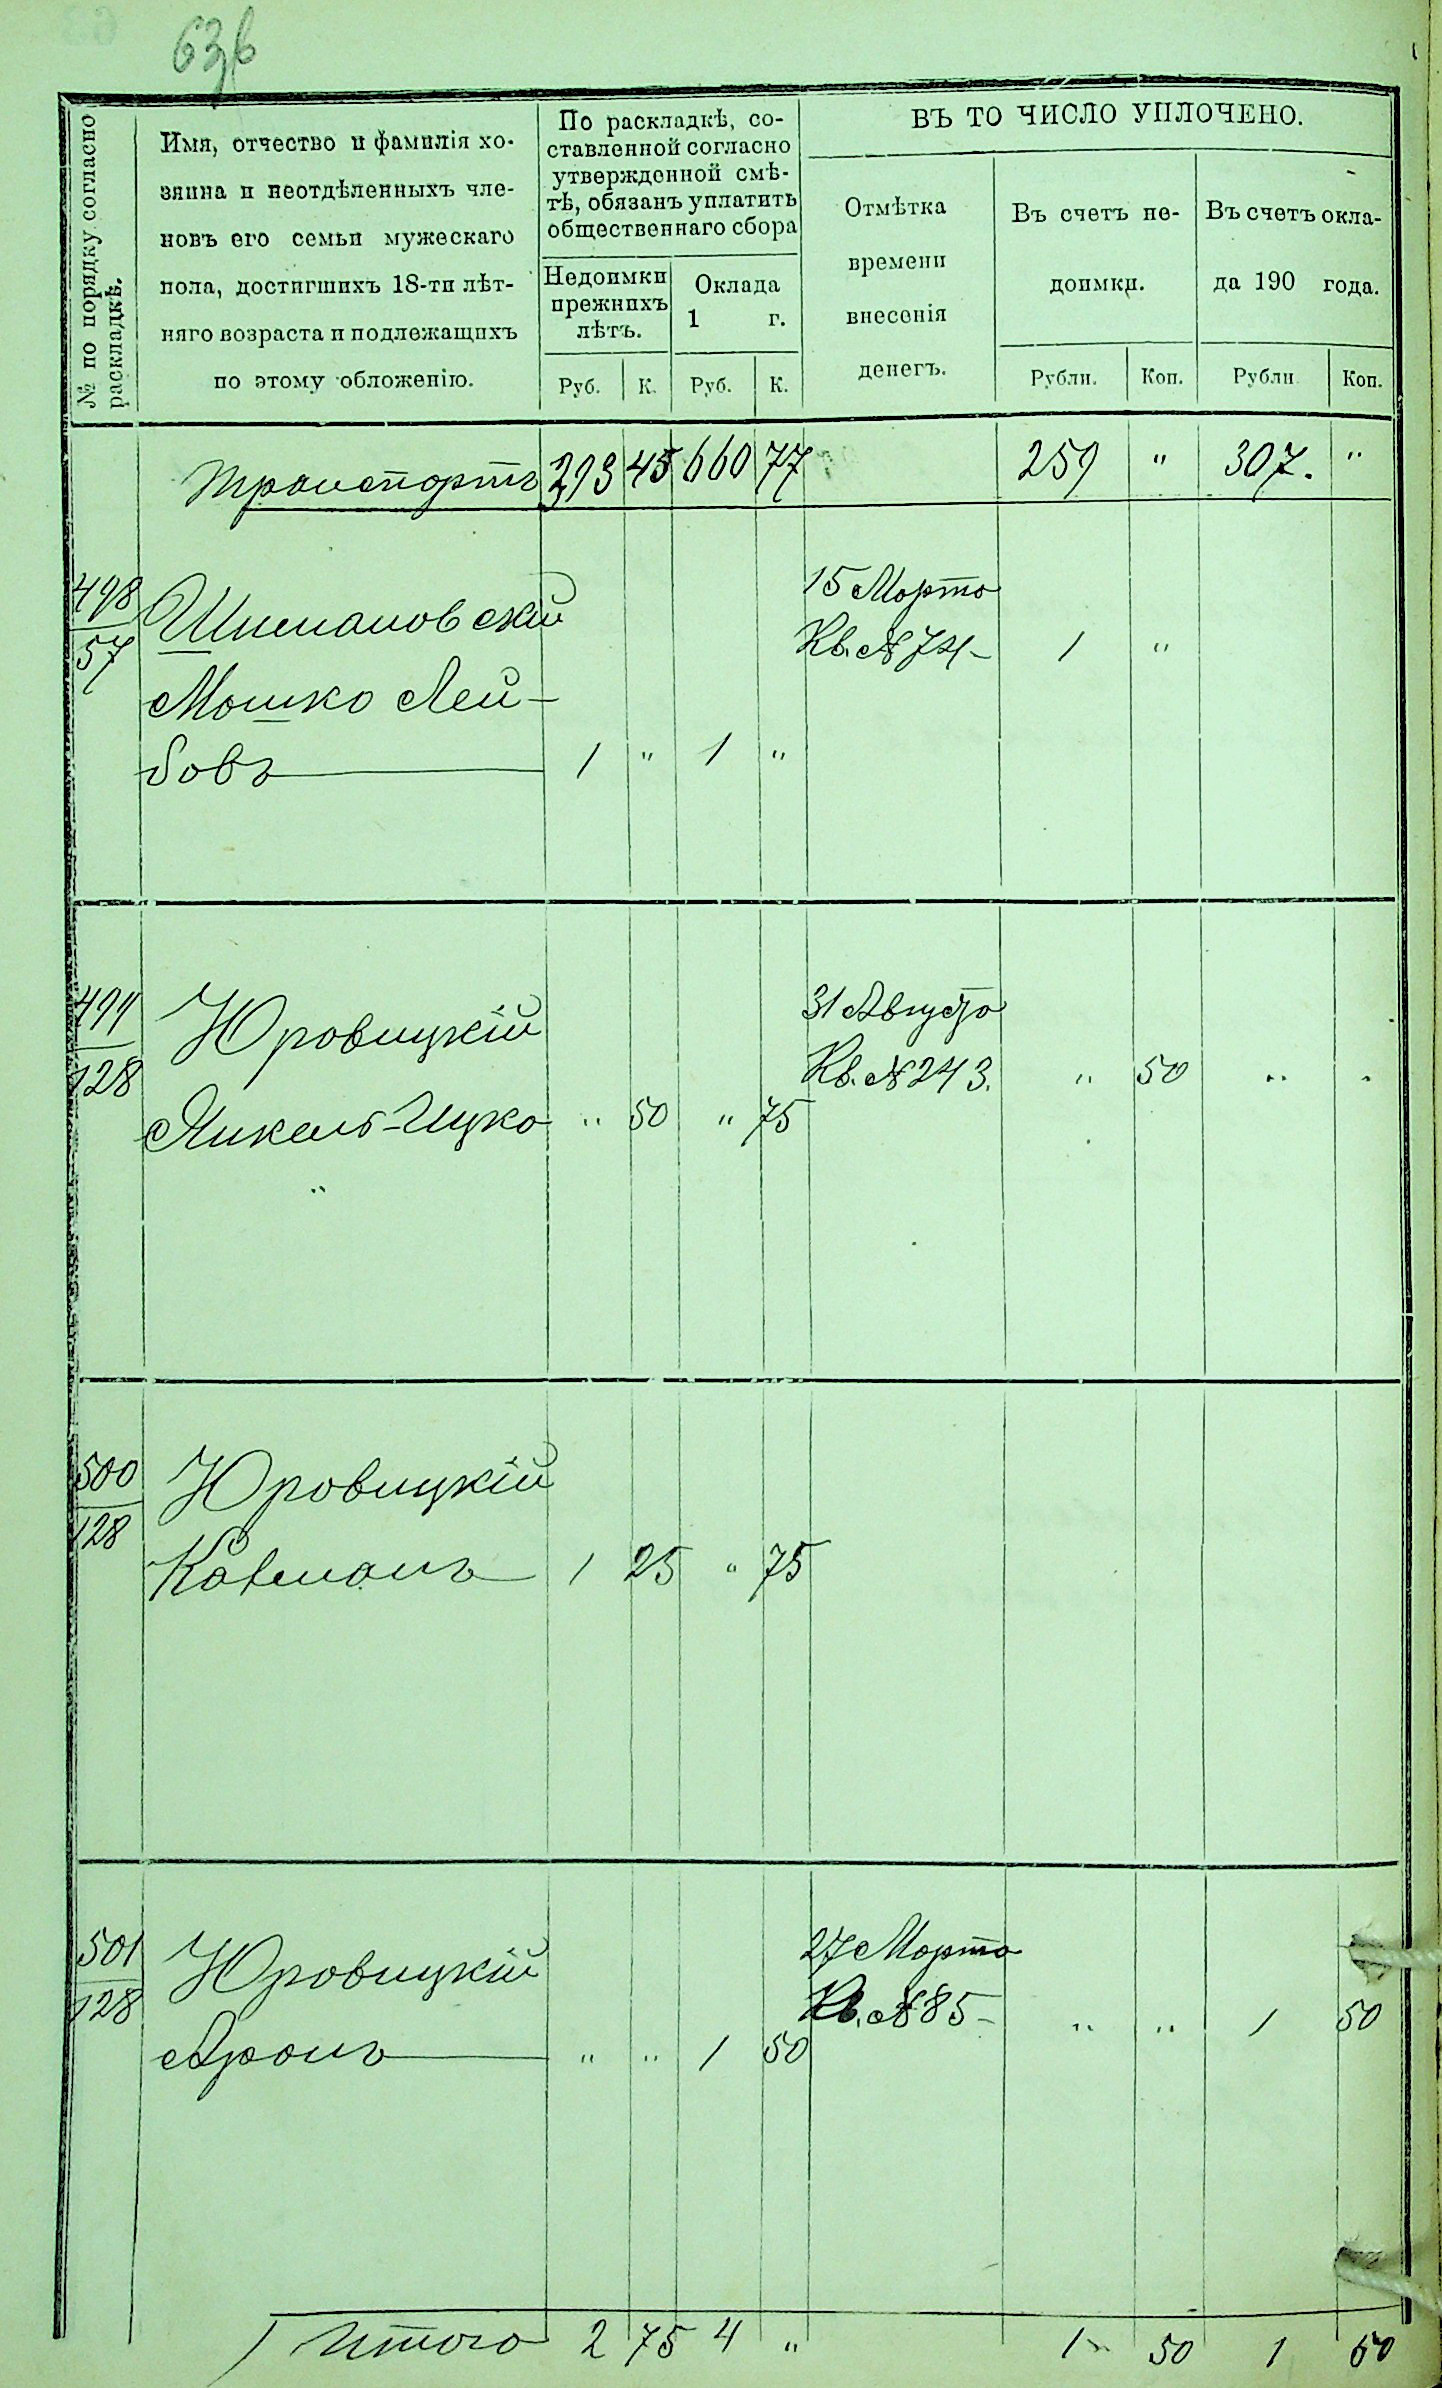 63б
№ по порядку согласно раскладкѣ.
Имя, отчество и фамилія хо-
зяина и неотдѣленныхъ чле-
новъ его семьи мужескаго
пола, достигшихъ 18-ти лѣт-
няго возраста и подлежащихъ
по этому обложенію.
По раскладкѣ, со-
ставленной согласно
утвержденной смѣ-
тѣ, обязанъ уплатить
общественнаго сбора
Недоимки
прежнихъ
лѣтъ.
Оклада
1 г.
Руб. К. Руб. К.
ВЪ ТО ЧИСЛО УПЛОЧЕНО.
Отмѣтка
времени
внесенія
денегъ.
Въ счетъ не-
доимки.
Въ счетъ окла-
да 190 года.
Рубли. Коп. Рубли Коп.
Транспортъ 293 45 660 77 259 " 307. "
498
57
Шимановскій
Мошко Лей-
бовъ 1 " 1 "
15 Марта
Кв. № 74- 1 "
499
128
Юровицкій
Янкель-Ицко " 50 " 75
"
31 Августа
Кв. № 243. " 50 "
500
128
Юровицкій
Калманъ 1 25 " 75
501
128
Юровицкій
Аронъ " " 1 50
27 Марта
Кв. № 85- " " 1 50
Итого 2 75 4 " 1 50 1 50